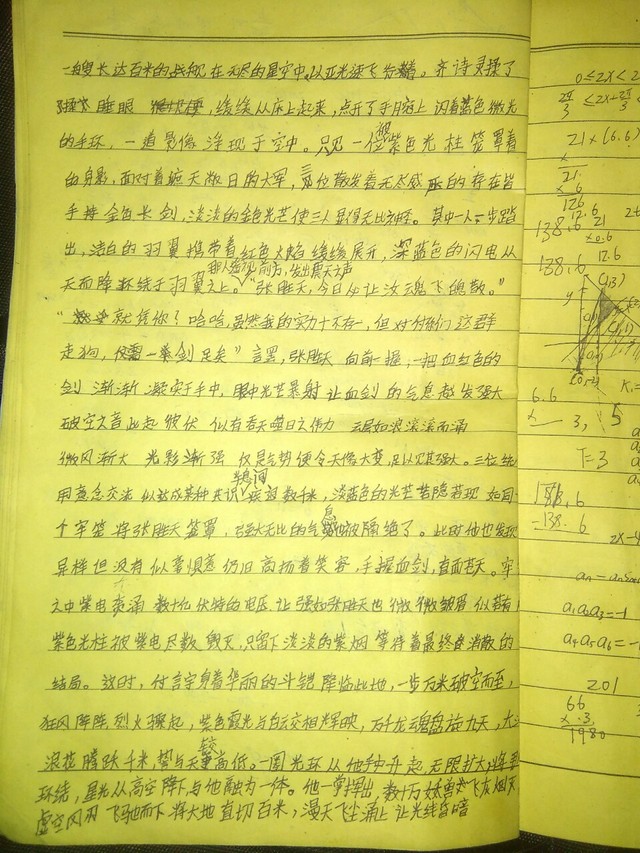 一艘长达百米的战舰在无尽的星空中以亚光速飞行着。齐诗灵揉了
睡眼，缓缓从床上起来，点开了手腕上闪着蓝色微光
的手环，一道影像浮现于空中。只见一位被紫色光柱笼罩着
的身影，面对着遮天敝日的大军，三位散发着无尽威压的存在皆
手持金色长剑，淡淡的金色光芒使三人显得无比神圣。其中一人一步踏
出，洁白的羽翼携带着红色火焰缓缓展开，深蓝色的闪电从
天而降环绕于羽翼之上。那人临步前方，发出震天之声 "张胜天，今日必让汝魂飞魄散。"
"就凭你？哈哈，虽然我的实力十不存一，但对付你们这群
走狗，仅需一柄剑足矣"言罢，张胜天向前一握，一把血红色的
剑渐渐凝实于手中，眼中光芒暴射让血剑的气息越发强大
破空之音此起彼伏 似有吞天噬日之伟力 云层如浪滚滚而涌
微风渐大 光影渐强 仅是气势便令天像大变，足以见其强大。三位
用意念交流 似达成某种共识 半息间 疾驰数千米，淡蓝色的光芒若隐若现 如同
个牢笼 将张胜天笼罩，强大无比的气息也被隔绝了。此时他也发现
异样但没有似毫惧意 仍旧高扬着笑容，手握血剑，直面苍天。牢
之中紫电奔涌 数十亿伏特的电压 让强如张胜天也微微皱眉 似若有
紫色光柱被紫电尽数毁灭，只留下淡淡的紫烟等待着最终消散的
结局。这时，付言宇身着华丽的斗铠降临此地，一步万米破空而至，
狂风阵阵烈火骤起，紫色霞光与白云交相辉映，万千龙魂盘旋九天，大江
浪花腾跃千米 势与天较高低。一圈光环从他手中升起 无限扩大
环绕，星光从高空降下与他融为一体。他一掌挥出，数十万妖兽灰飞烟灭
虚空风刃飞驰而下将大地直切百米，漫天飞尘涌上让光线皆暗
0≤2x<2
21×(6.6)
21
× 6
126
12.6
138.6
21
×0.6
12.6
138.6
y
(1,3)
6.6
3,
5
T=3
138.6
138.6
a₁a₂a₃=-1
a₄a₅a₆=-
201
66
×.3
1980